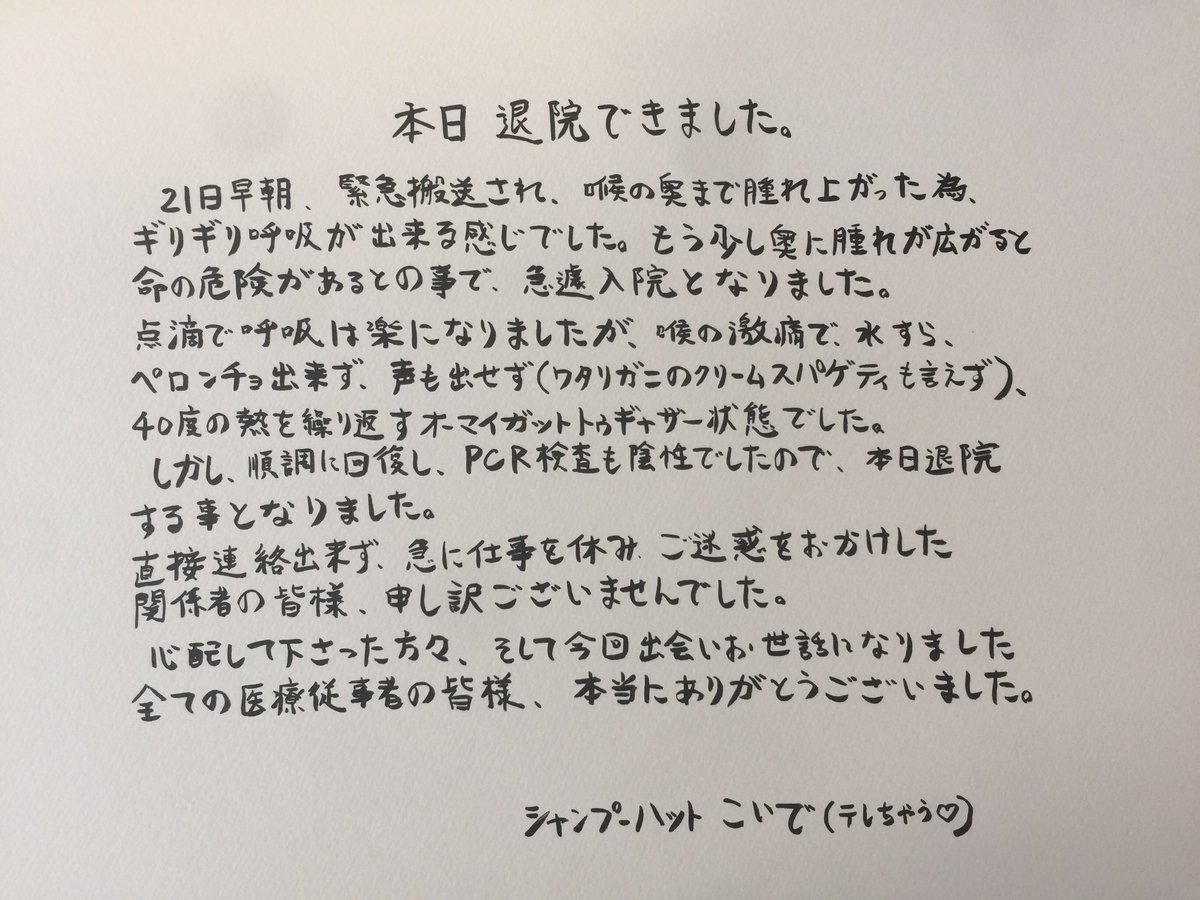 本日 退院できました。
21日早朝、緊急搬送され、喉の奥まで腫れ上がった為、
ギリギリ呼吸が出来る感じでした。もう少し奥に腫れが広がると
命の危険があるとの事で、急遽入院となりました。
点滴で呼吸は楽になりましたが、喉の激痛で、水すら、
ペロンチョ出来ず、声も出せず(ワタリガニのクリームスパゲティも言えず)、
40度の熱を繰り返すオーマイガットトゥギャザー状態でした。
しかし、順調に回復し、PCR検査も陰性でしたので、本日退院
する事となりました。
直接連絡出来ず、急に仕事を休み、ご迷惑をおかけした
関係者の皆様、申し訳ございませんでした。
心配して下さった方々、そして今回出会いお世話になりました
全ての医療従事者の皆様、本当にありがとうございました。
シャンプーハット こいで(テレちゃう♡)